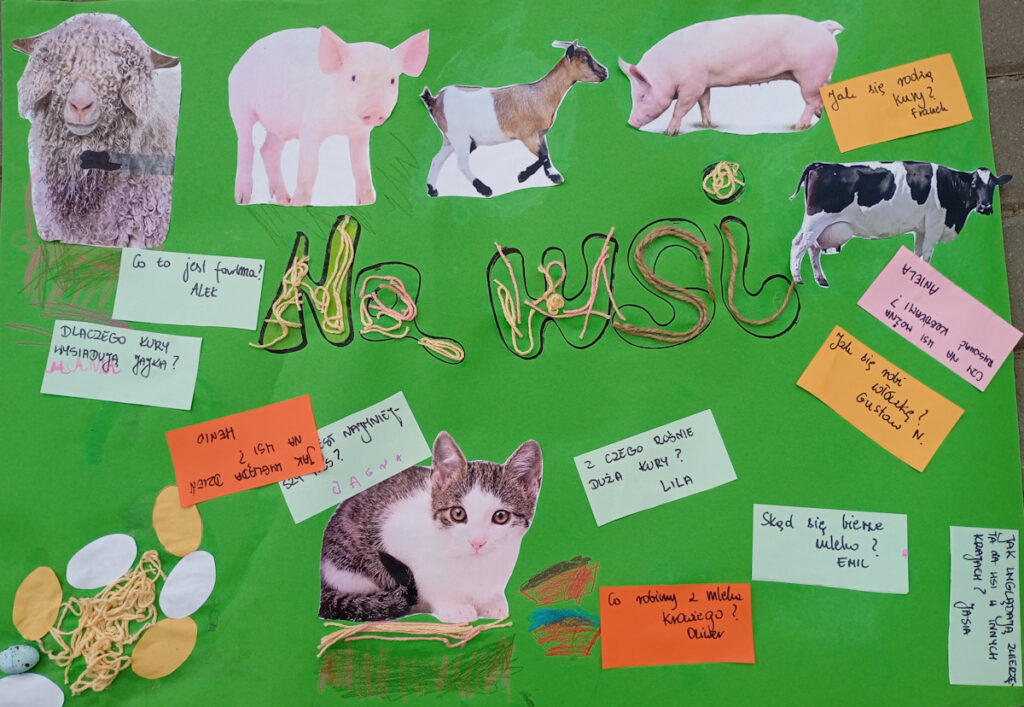 Jak się rodzą
kury?
Franek
Na wsi
Co to jest farma?
ALEK
DLACZEGO KURY
WYSIADUJĄ JAJKA?
CZY NA WSI MOŻNA
RYSOWAĆ KREDKAMI?
ANIELA
Jak się robi
włóczkę?
Gustaw N.
JAK WYGLĄDA DZIEŃ
NA WSI?
HENIO
EST NAJMNIEJ-
SZY
JAGNA
Z CZEGO ROŚNIE
DUŻA KURY?
LILA
Skąd się bierze
mleko?
EMIL
Co robimy z mleka
krowiego?
Oliwier
JAK WYGLĄDAJĄ ZWIERZĘ-
TA NA WSI W INNYCH
KRAJACH?
JASIA